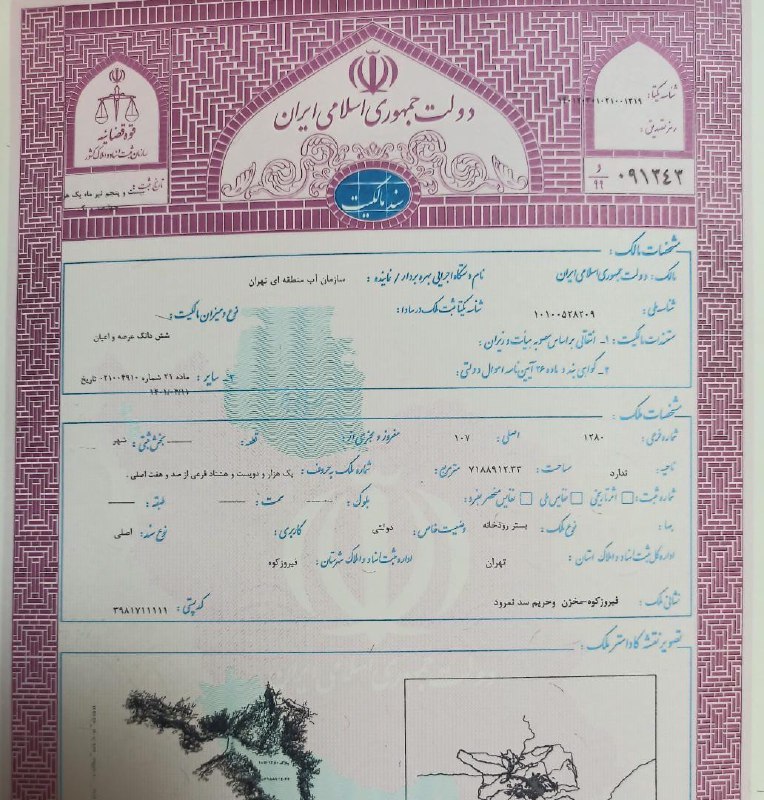 دولت جمهوری اسلامی ایران
قوه قضائیه
سازمان ثبت اسناد و املاک کشور
شناسه یکتا:
رمز تصدیق:
۰۹۱۳۴۳
و
۹۹
تاریخ ثبت
و پنجم تیر ماه یک هز
سند مالکیت
مشخصات مالک:
مالک: دولت جمهوری اسلامی ایران نام دستگاه اجرایی بهره بردار / نماینده : سازمان آب منطقه ای تهران
شناسه ملی: ۱۰۱۰۰۵۲۸۲۰۹ شناسه یکتا ثبت ملک در سادا: نوع و میزان مالکیت:
مستندات مالکیت: ۱- انتقالی براساس مصوبه هیأت وزیران: شش دانگ عرصه و اعیان
۲- گواهی بند و ماده ۲۶ آیین نامه اموال دولتی: ۳- سایر: ماده ۲۶ شماره ۰۲۱۰۰۴۹۱۰ تاریخ
مشخصات ملک:
شماره فرعی: ۱۲۸۰ اصلی: ۱۰۷ مفروز و مجزی از: قطعه: بخش ثبتی: شهر
ناحیه: ندارد مساحت: ۷۱۸۸۹۱۲.۳۳ مترمربع: شماره ملک به حروف: یک هزار و دویست و هشتاد فرعی از صد و هفت اصلی
شماره ثبت: اثر تاریخی نفایس ملی نفایس منحصر بفرد: بلوک: سمت: طبقه:
بها: نوع ملک: بستر رودخانه وضعیت خاص: دولتی کاربری: نوع سند: اصلی
اداره کل ثبت اسناد و املاک استان: تهران اداره ثبت اسناد و املاک شهرستان: فیروزکوه
نشانی ملک: فیروزکوه-مخزن وحریم سد نمرود کدپستی: ۳۹۸۱۷۱۱۱۱۱
تصویر نقشه کاداستر ملک: